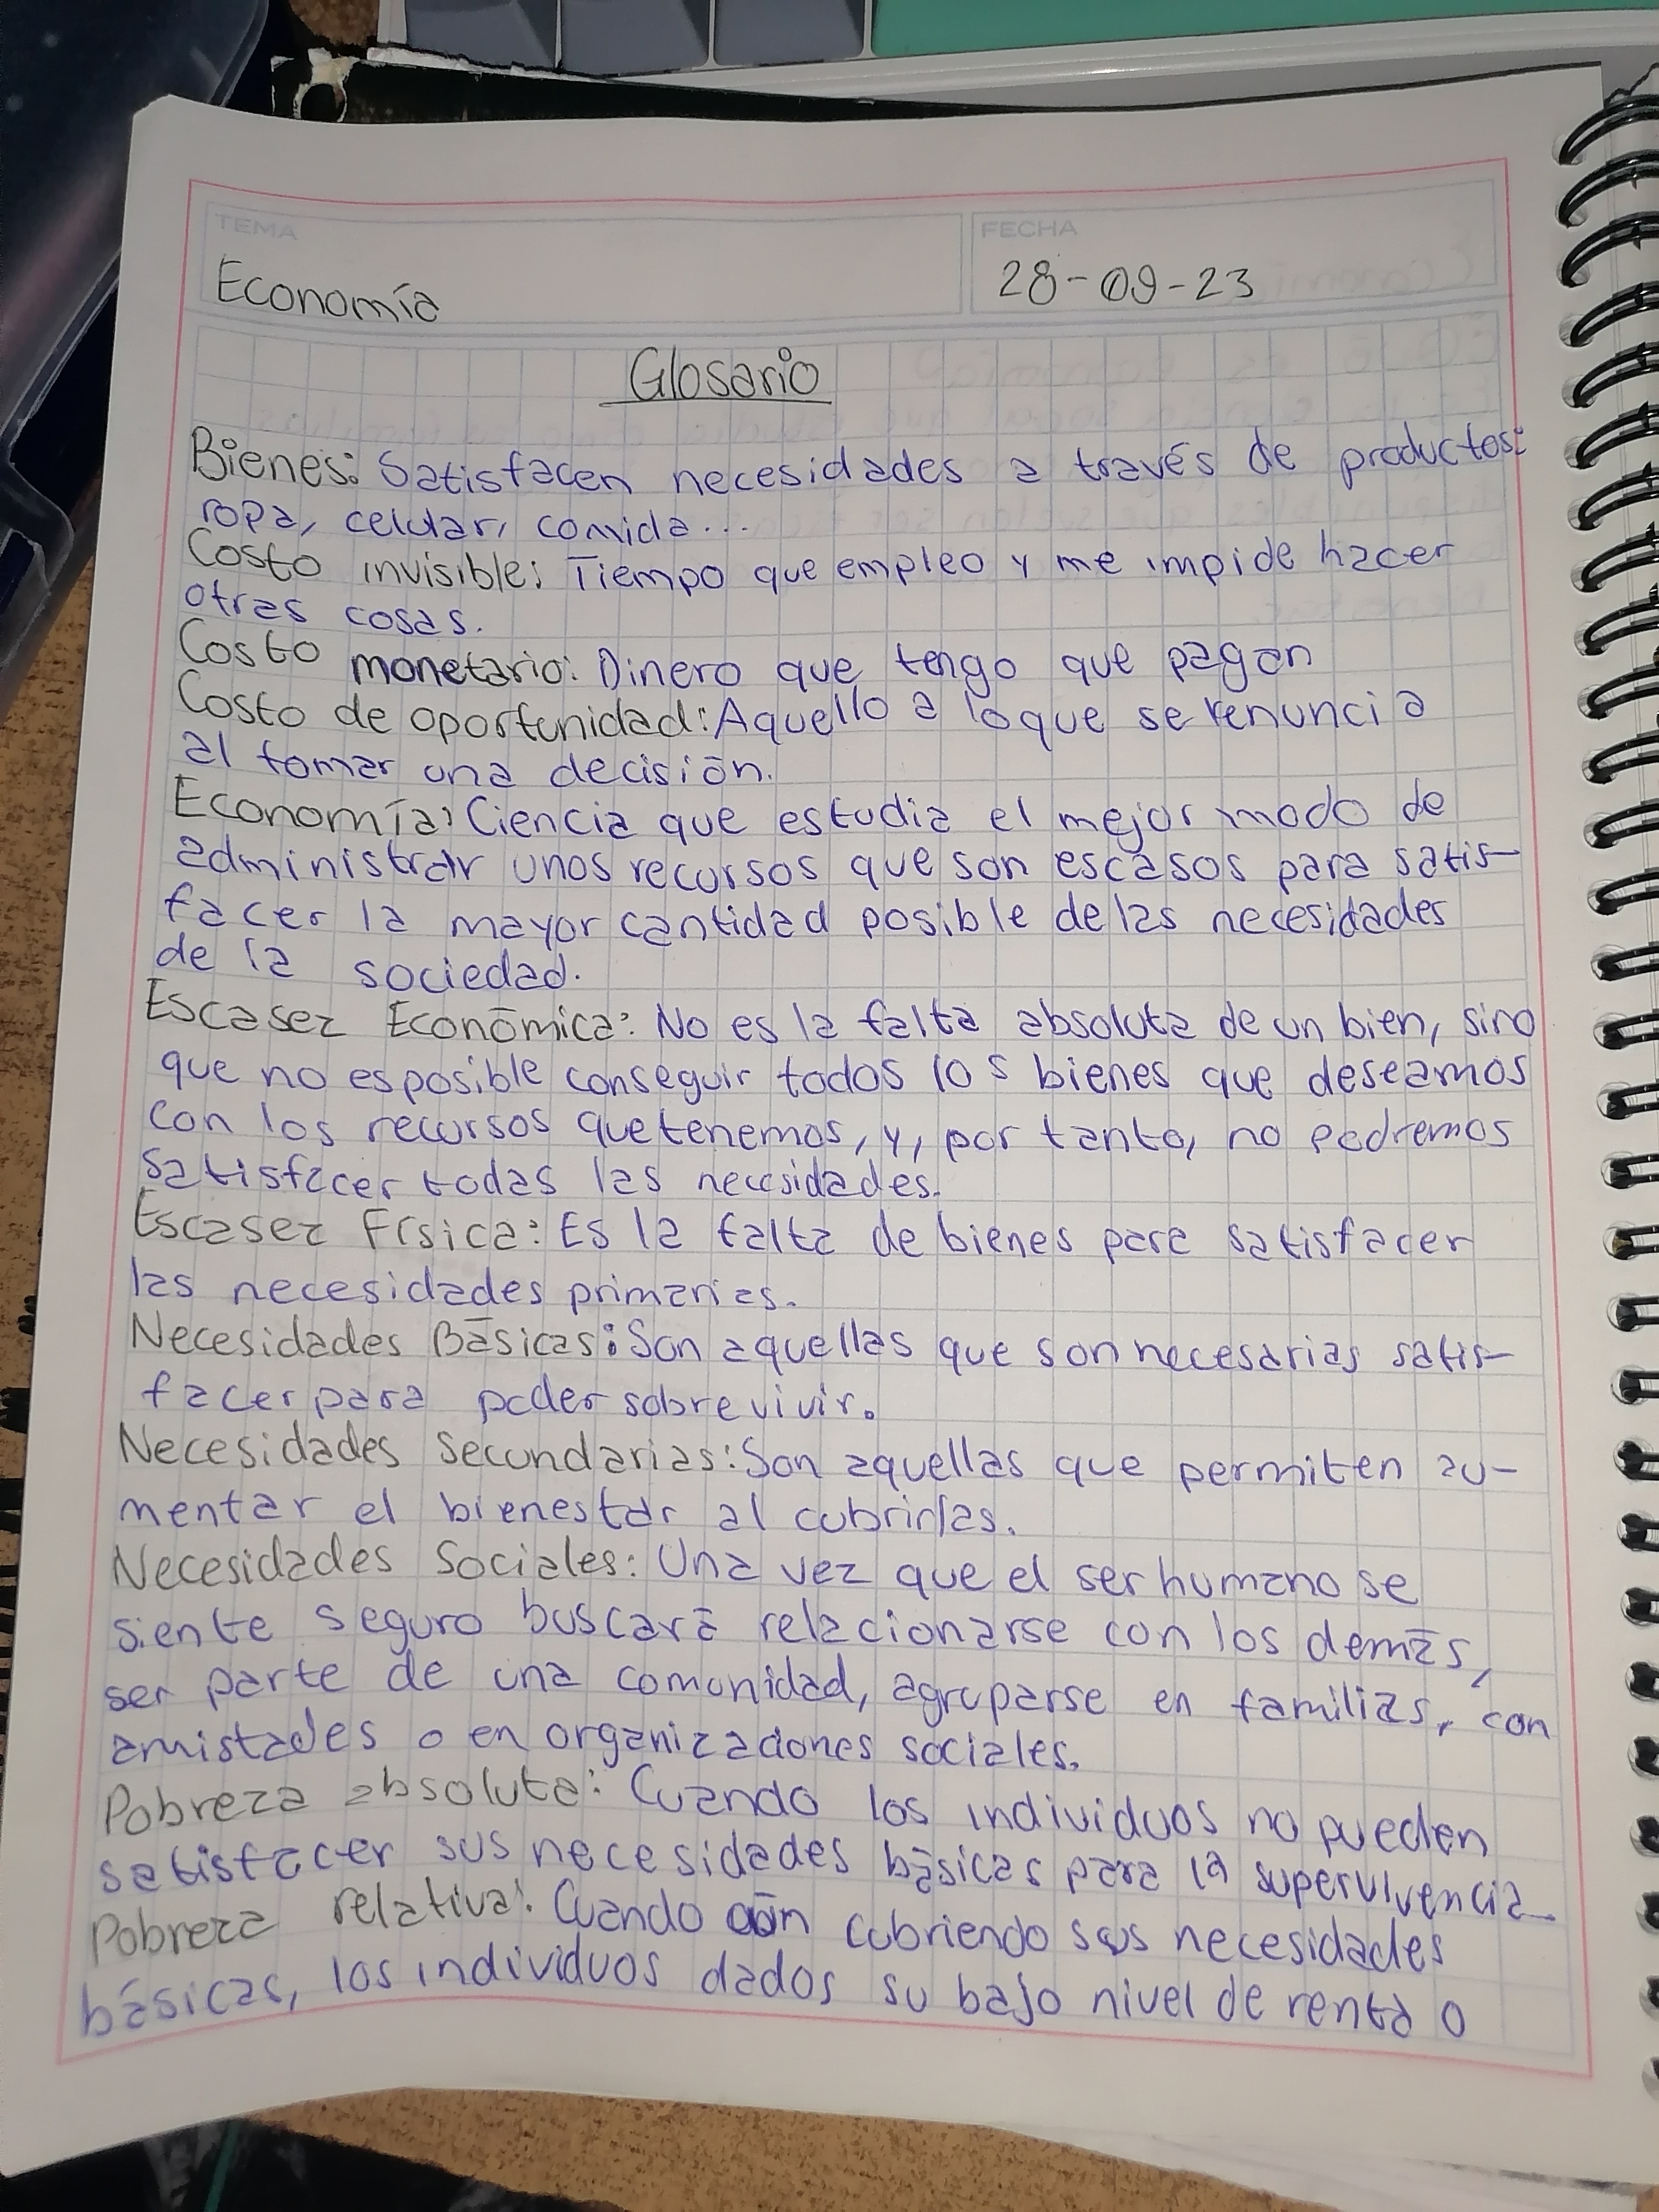 TEMA
FECHA
Economía
28-09-23
Glosario
Bienes: Satisfacen necesidades a través de productos:
ropa, celular, comida...
Costo invisible: Tiempo que empleo y me impide hacer
otras cosas.
Costo monetario: Dinero que tengo que pagan
Costo de oportunidad: Aquello a lo que se renuncia
al tomar una decisión.
Economía: Ciencia que estudia el mejor modo de
administrar unos recursos que son escasos para satis-
facer la mayor cantidad posible de las necesidades
de la sociedad.
Escasez Económica: No es la falta absoluta de un bien, sino
que no es posible conseguir todos los bienes que deseamos
con los recursos que tenemos, y, por tanto, no podremos
satisfacer todas las necesidades.
Escasez Física: Es la falta de bienes para satisfacer
las necesidades primarias.
Necesidades Básicas: Son aquellas que son necesarias satis-
facer para poder sobrevivir.
Necesidades Secundarias: Son aquellas que permiten au-
mentar el bienestar al cubrirlas.
Necesidades Sociales: Una vez que el ser humano se
siente seguro buscará relacionarse con los demás,
ser parte de una comunidad, agruparse en familias, con
amistades o en organizaciones sociales.
Pobreza absoluta: Cuando los individuos no pueden
satisfacer sus necesidades básicas para la supervivencia.
Pobreza relativa: Cuando aún cubriendo sus necesidades
básicas, los individuos dados su bajo nivel de renta o